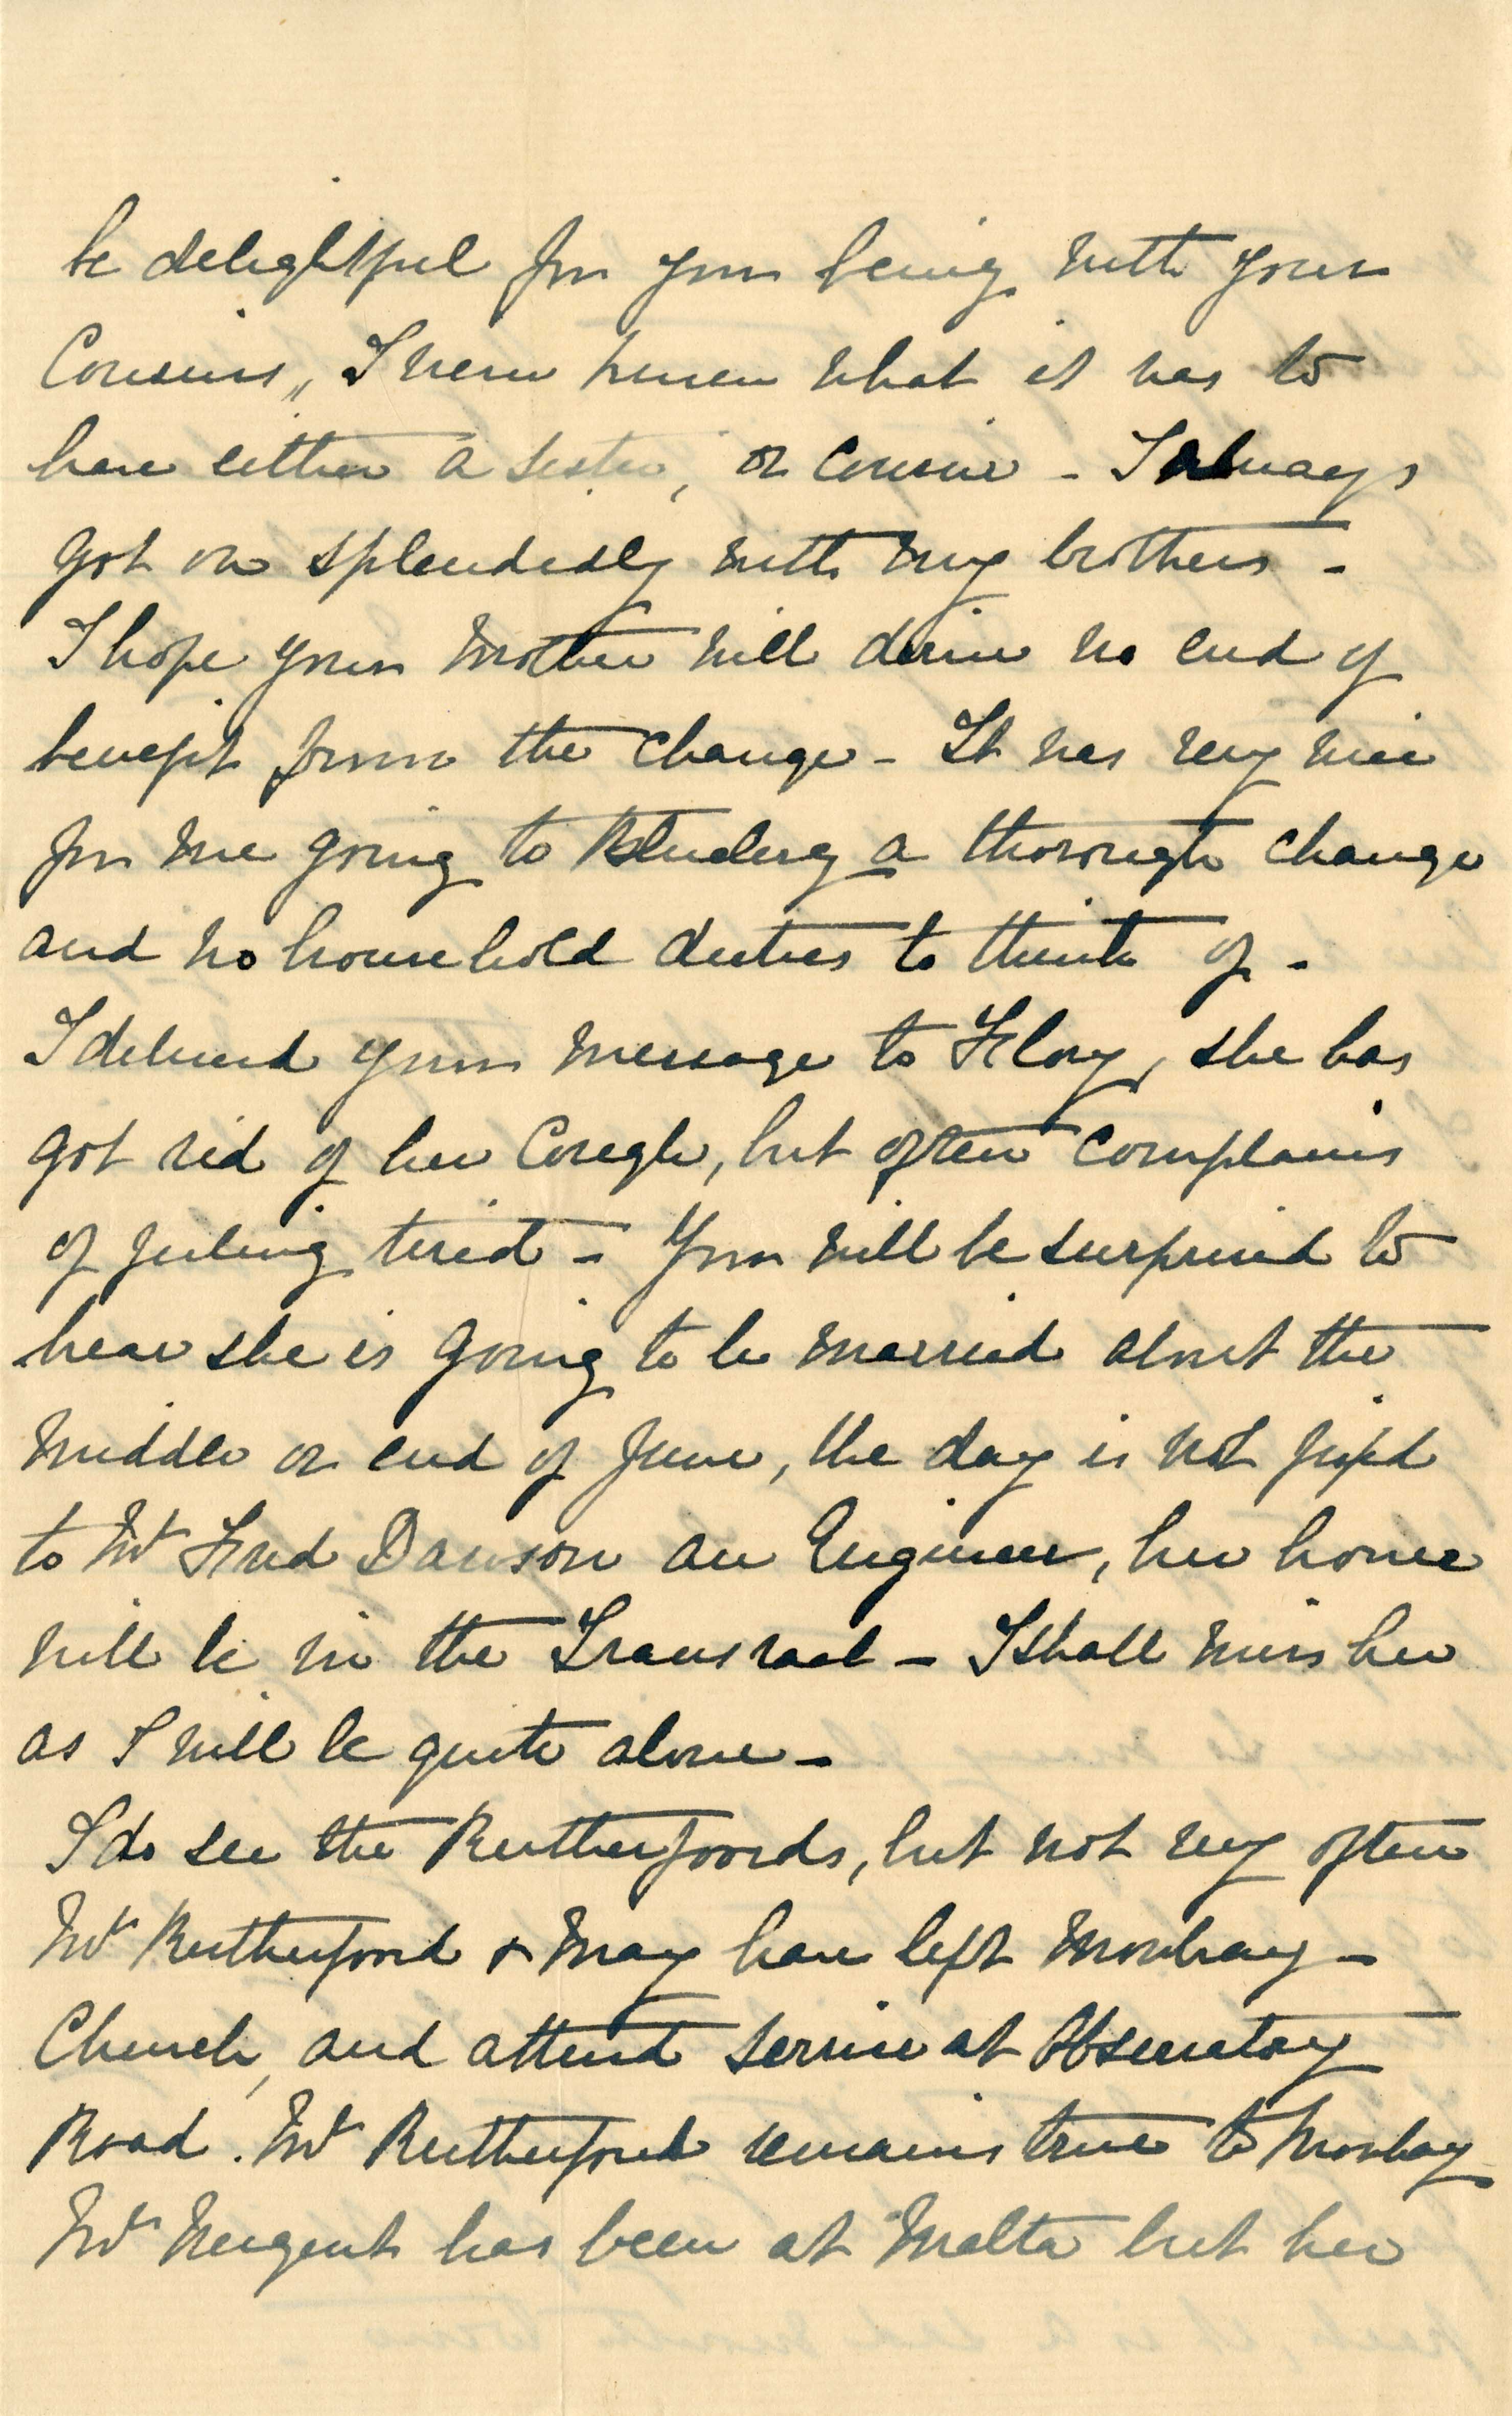 be delightful for you being with your
Cousins,, I never knew what it was to
have either a sister, or cousin - I always
got on splendidly with my brothers -
I hope your Mother will derive no end of
benefit from the change - It was very nice
for me going to a thorough change
and no household duties to think of -
I delivered your message to Flory, she has
got rid of her Cough, but often complains
of feeling tired - You will be surprised to
hear she is going to be married about the
middle or end of June, the day is not fixed
to Mr Fred Dawson an Engineer, her home
will be in the Transvaal - I shall miss her
as I will be quite alone -
I do see the Rutherfoords, but not very often
Rutherfoord & May have left Mowbray -
Church, and attend service at Observatory
Road. Rutherfoord remains true to Mowbray
has been at Malta but her